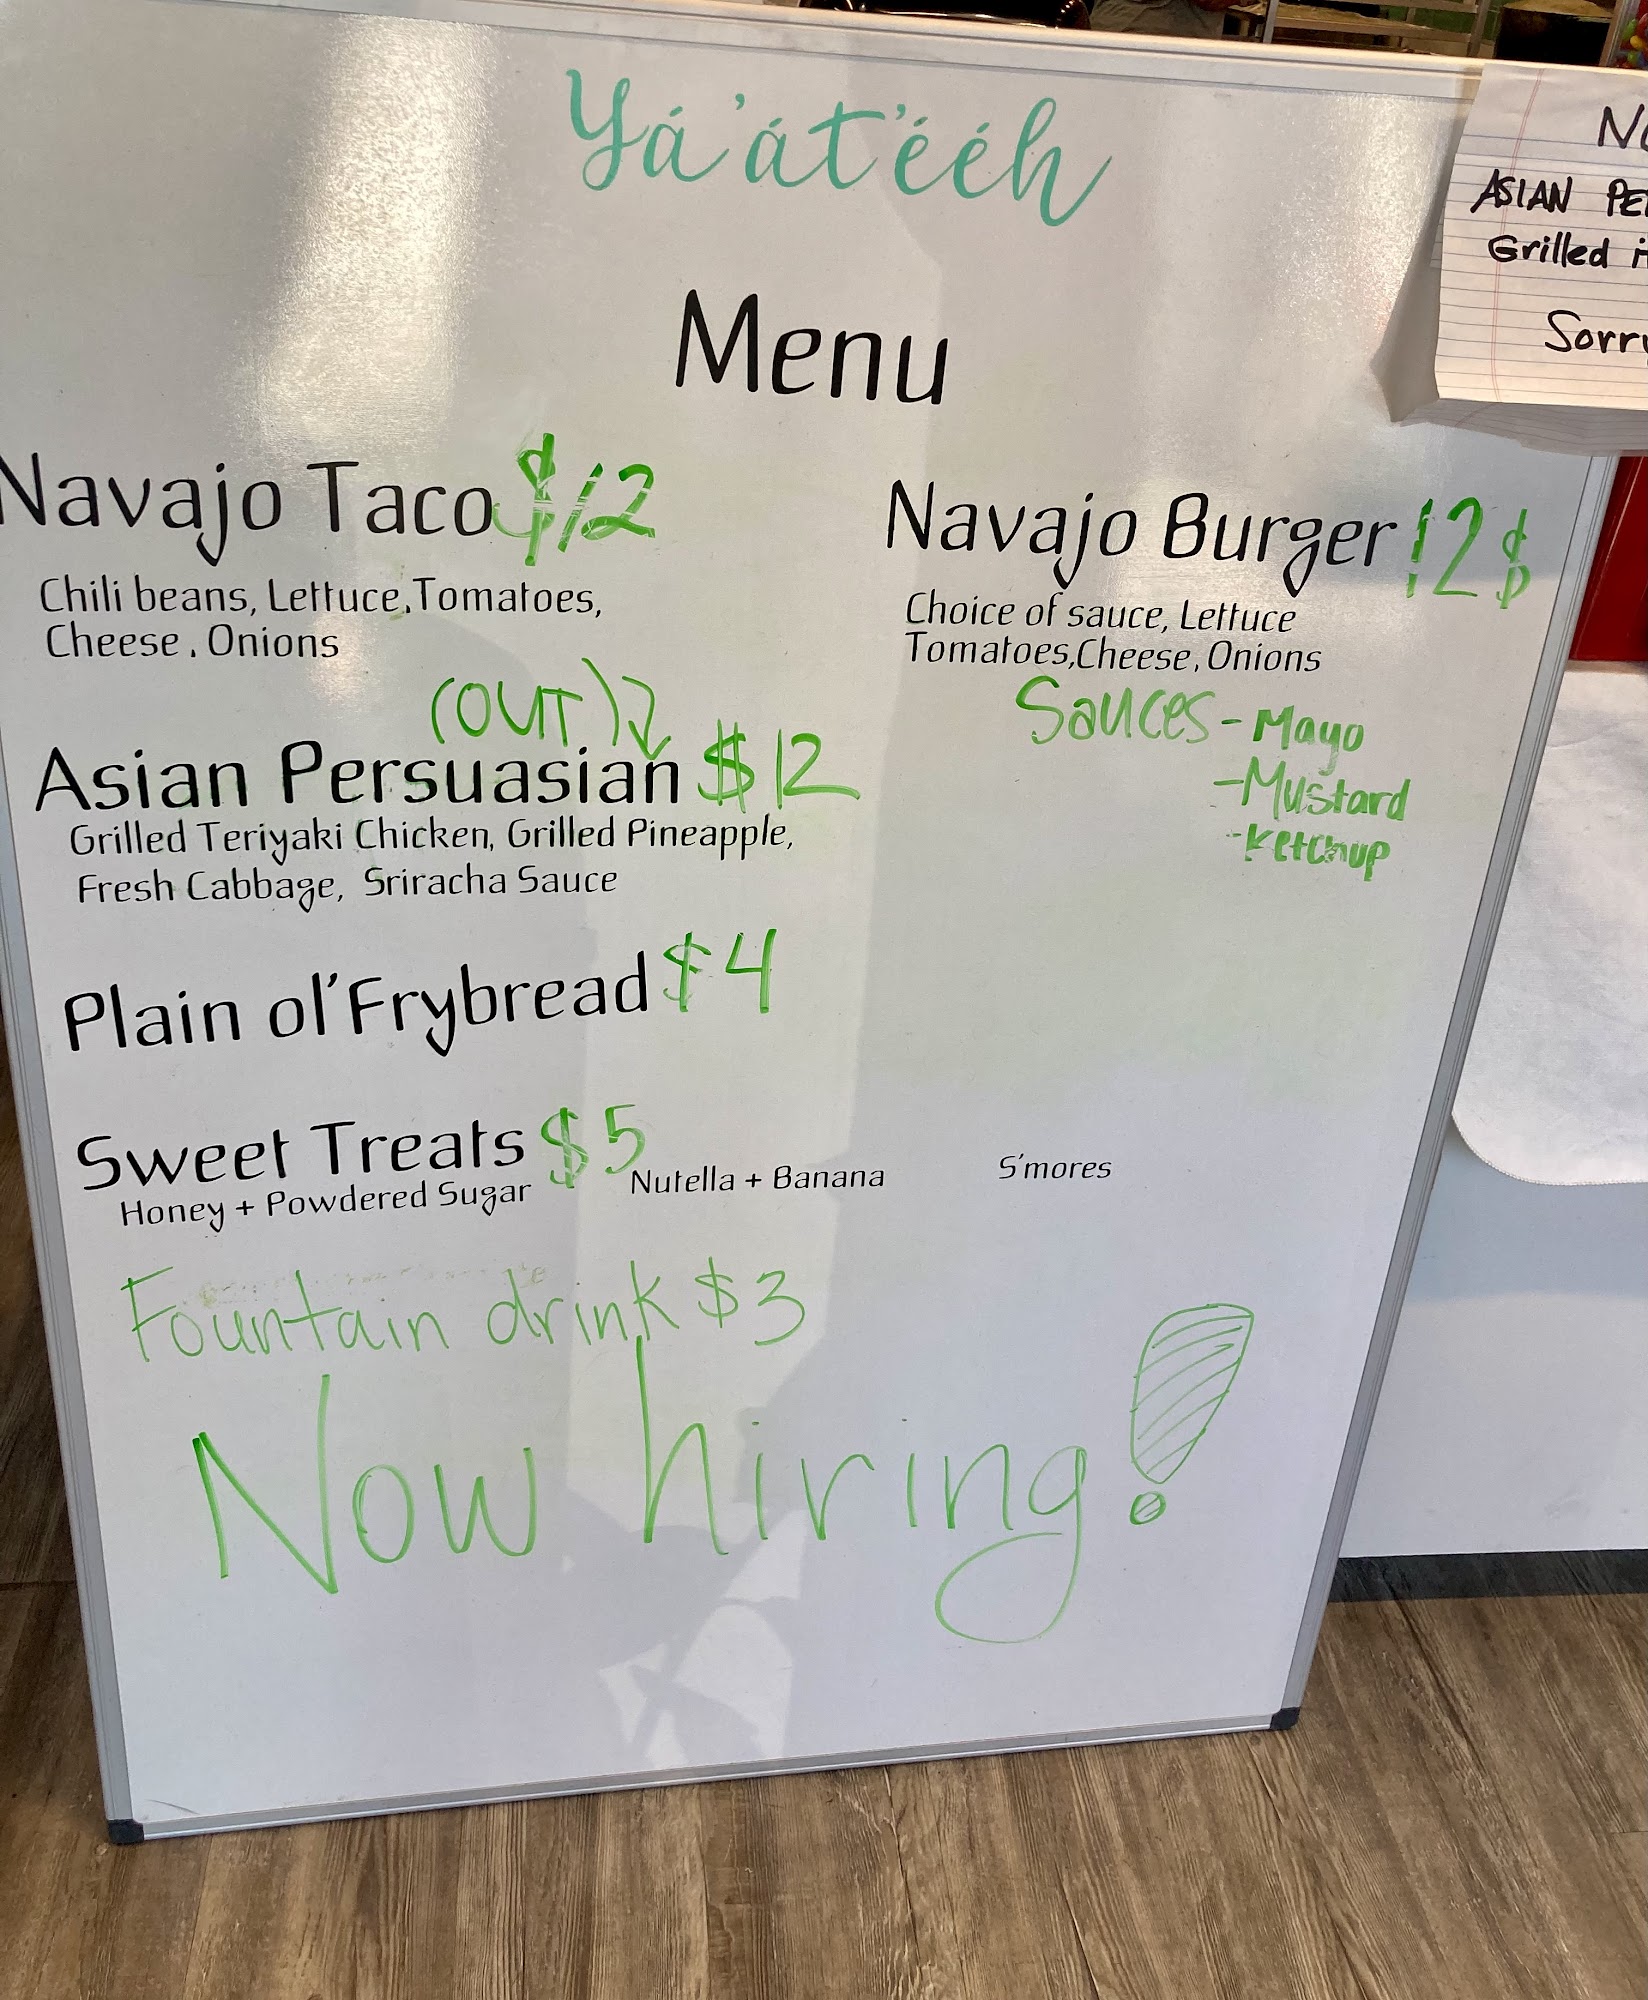 Yá'át'ééh
Menu
Navajo Taco $12
Chili beans, Lettuce, Tomatoes,
Cheese, Onions
(OUT)
Asian Persuasian $12
Grilled Teriyaki Chicken, Grilled Pineapple,
Fresh Cabbage, Sriracha Sauce
Plain ol' Frybread $4
Sweet Treats $5
Honey + Powdered Sugar
Nutella + Banana
S'mores
Fountain drink $3
Now hiring!
Navajo Burger 12$
Choice of sauce, Lettuce
Tomatoes, Cheese, Onions
Sauces - Mayo
- Mustard
- Ketchup
ASIAN
Grilled
Sorry